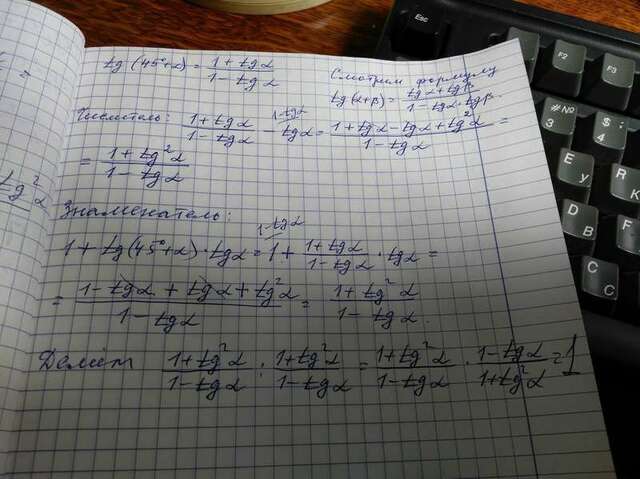 tg (45°+α) = (1 + tg α)/(1 - tg α)
Смотрим формулу
tg(α+β) = (tg α + tg β)/(1 - tg α · tg β)
Числитель: (1 + tg α)/(1 - tg α) - tg α (1-tg α) = (1 + tg α - tg α + tg²α)/(1 - tg α) =
= (1 + tg²α)/(1 - tg α)
Знаменатель:
1 + tg(45°+α) · tg α = 1 (1-tg α) + (1 + tg α)/(1 - tg α) · tg α =
= (1 - tg α + tg α + tg²α)/(1 - tg α) = (1 + tg²α)/(1 - tg α).
Делим (1 + tg²α)/(1 - tg α) : (1 + tg²α)/(1 - tg α) = (1 + tg²α)/(1 - tg α) · (1 - tg α)/(1 + tg²α) = 1
tg²α
Esc
F2
F3
# № 3
$ ; 4
E У
R К
D В
F А
C С